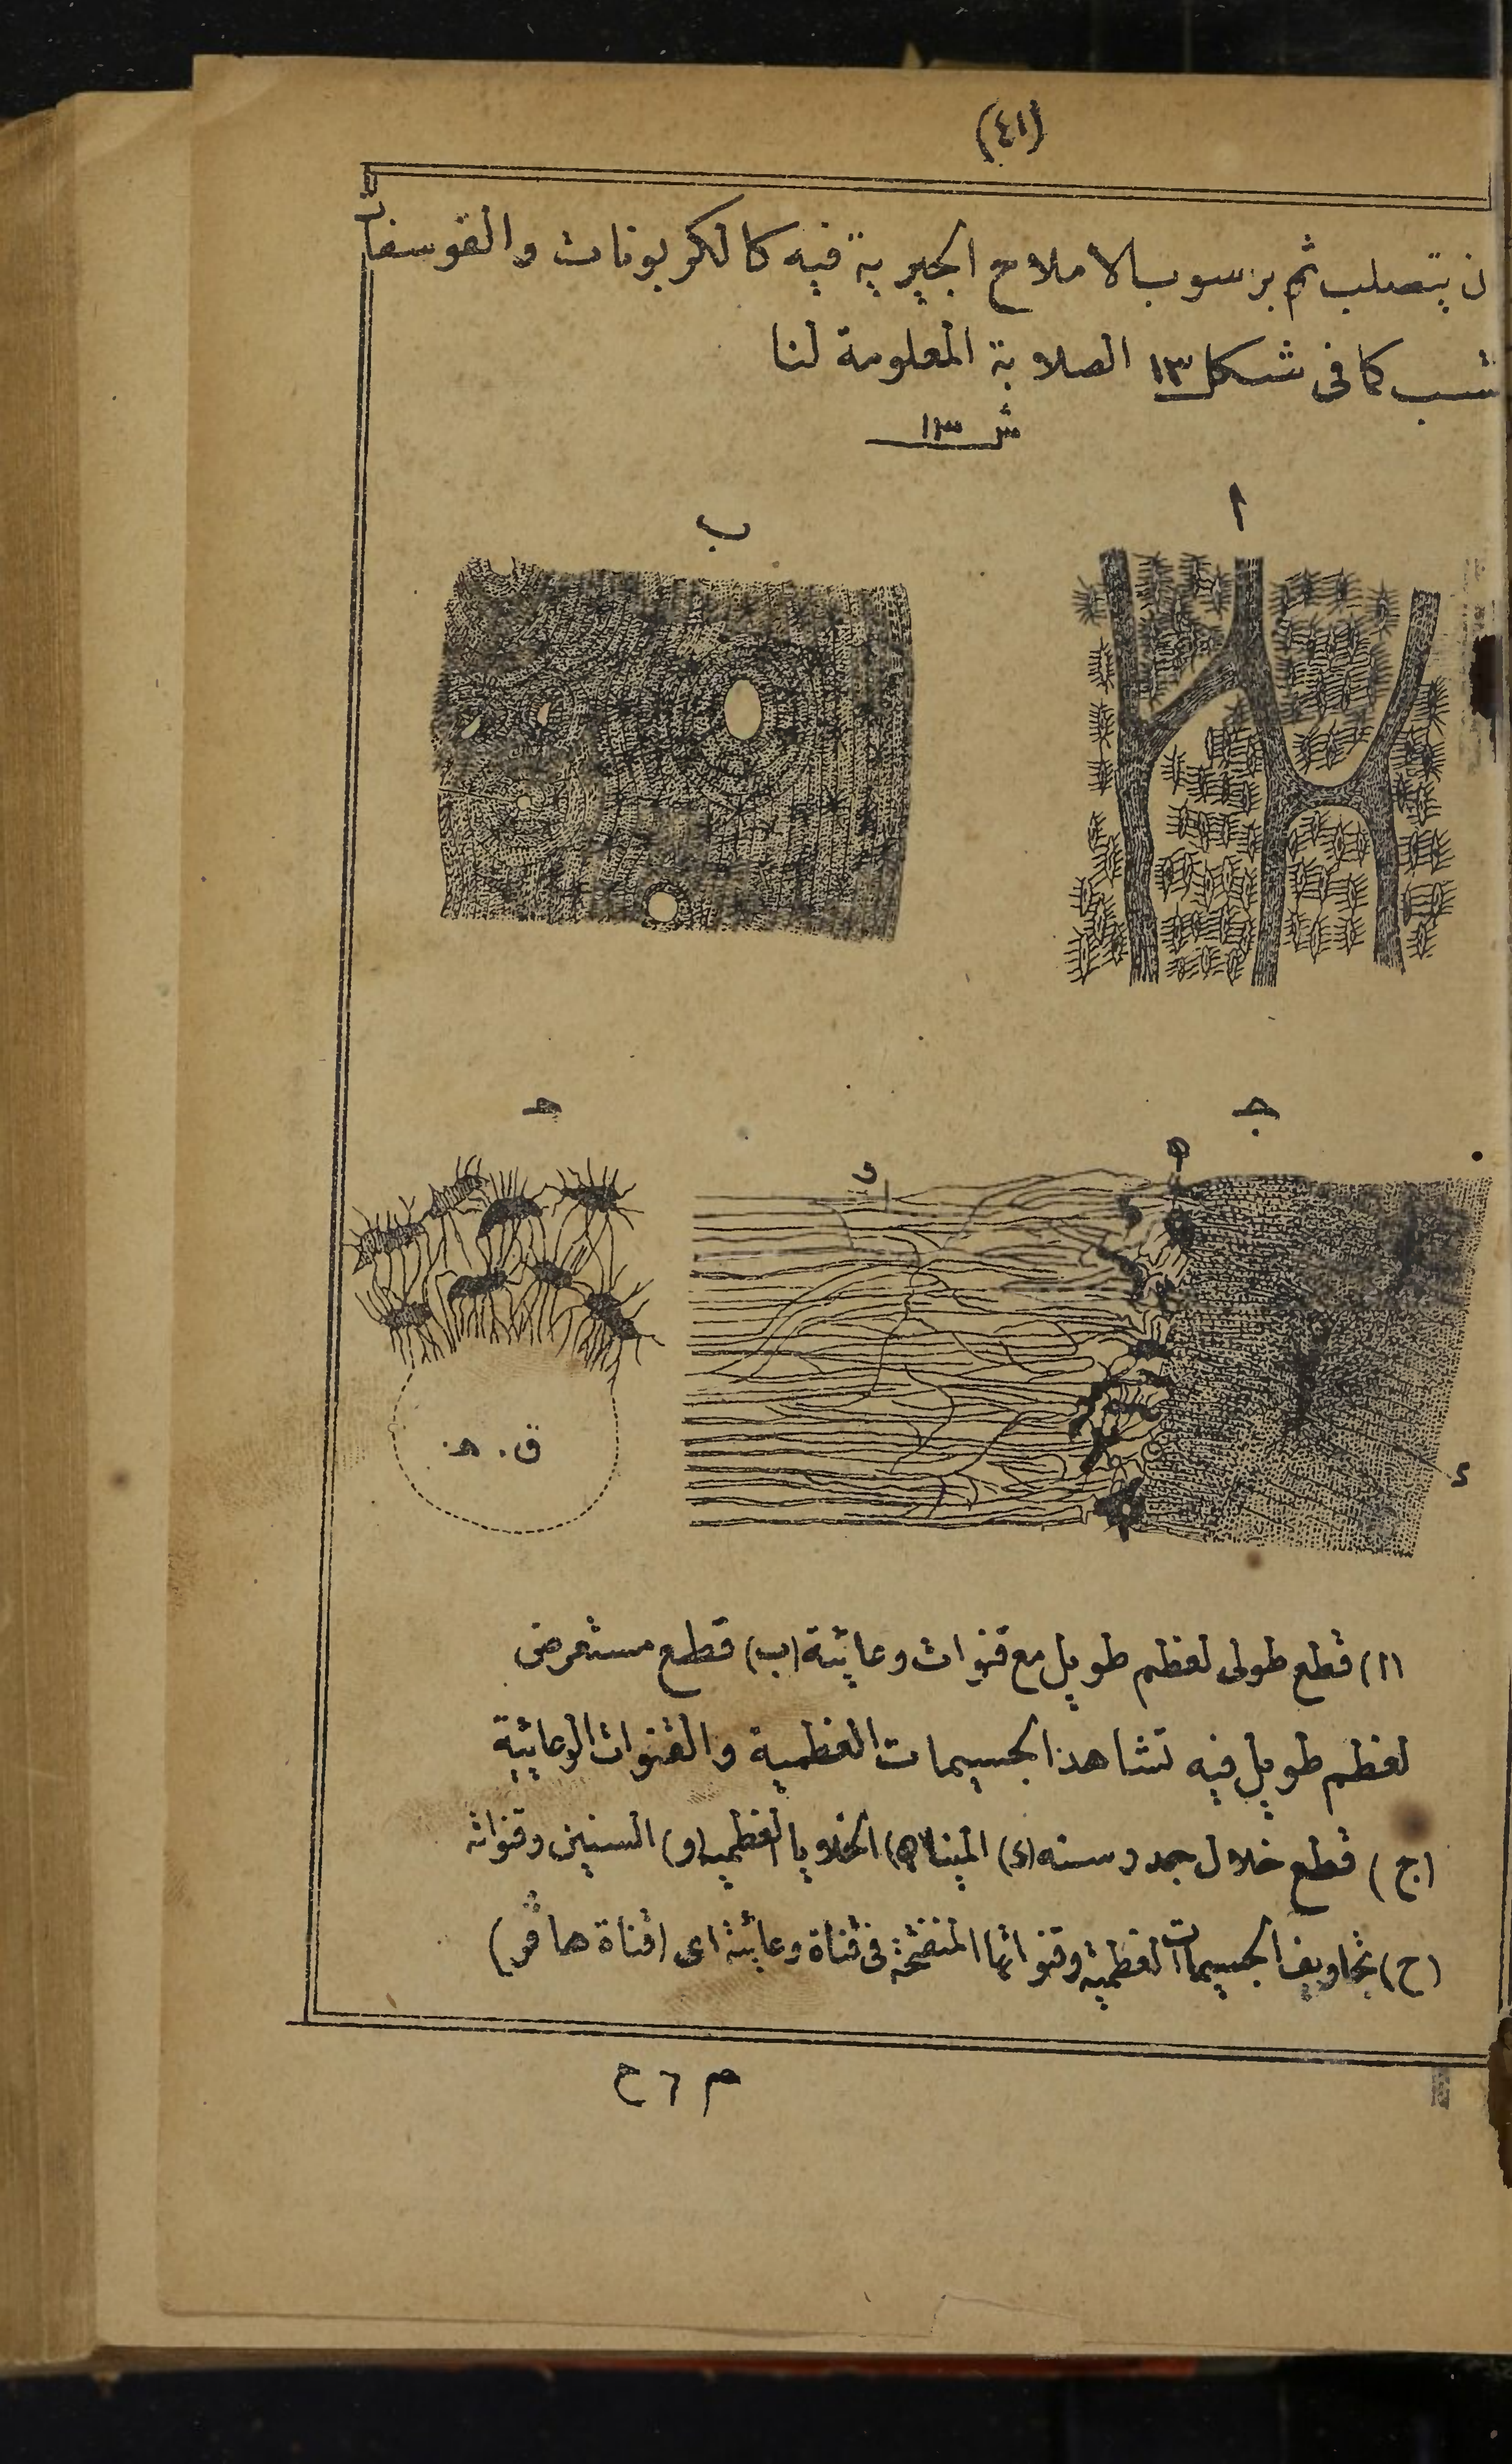 (٤١)
ن يتصلب ثم برسوب الاملاح الجيرية فيه كالكربونات والفوسفات
كما فى شكل ١٣ الصلابة المعلومة لنا
ش ١٣
ا
ب
ج
ح
و
ه
ق. ه.
د
(ا) قطع طولى لعظم طويل مع قنوات وعائية (ب) قطع مستعرض
لعظم طويل فيه تشاهد الجسيمات العظمية والقنوات الوعائية
(ج) قطع خلال سنه (د) المينا (ه) الخلايا العظمية (و) السنين وقنواته
(ح) تجاويف الجسيمات العظمية وقنواتها المنفتحة فى قناة وعائية اى (قناة هافر)
م ٦ ح